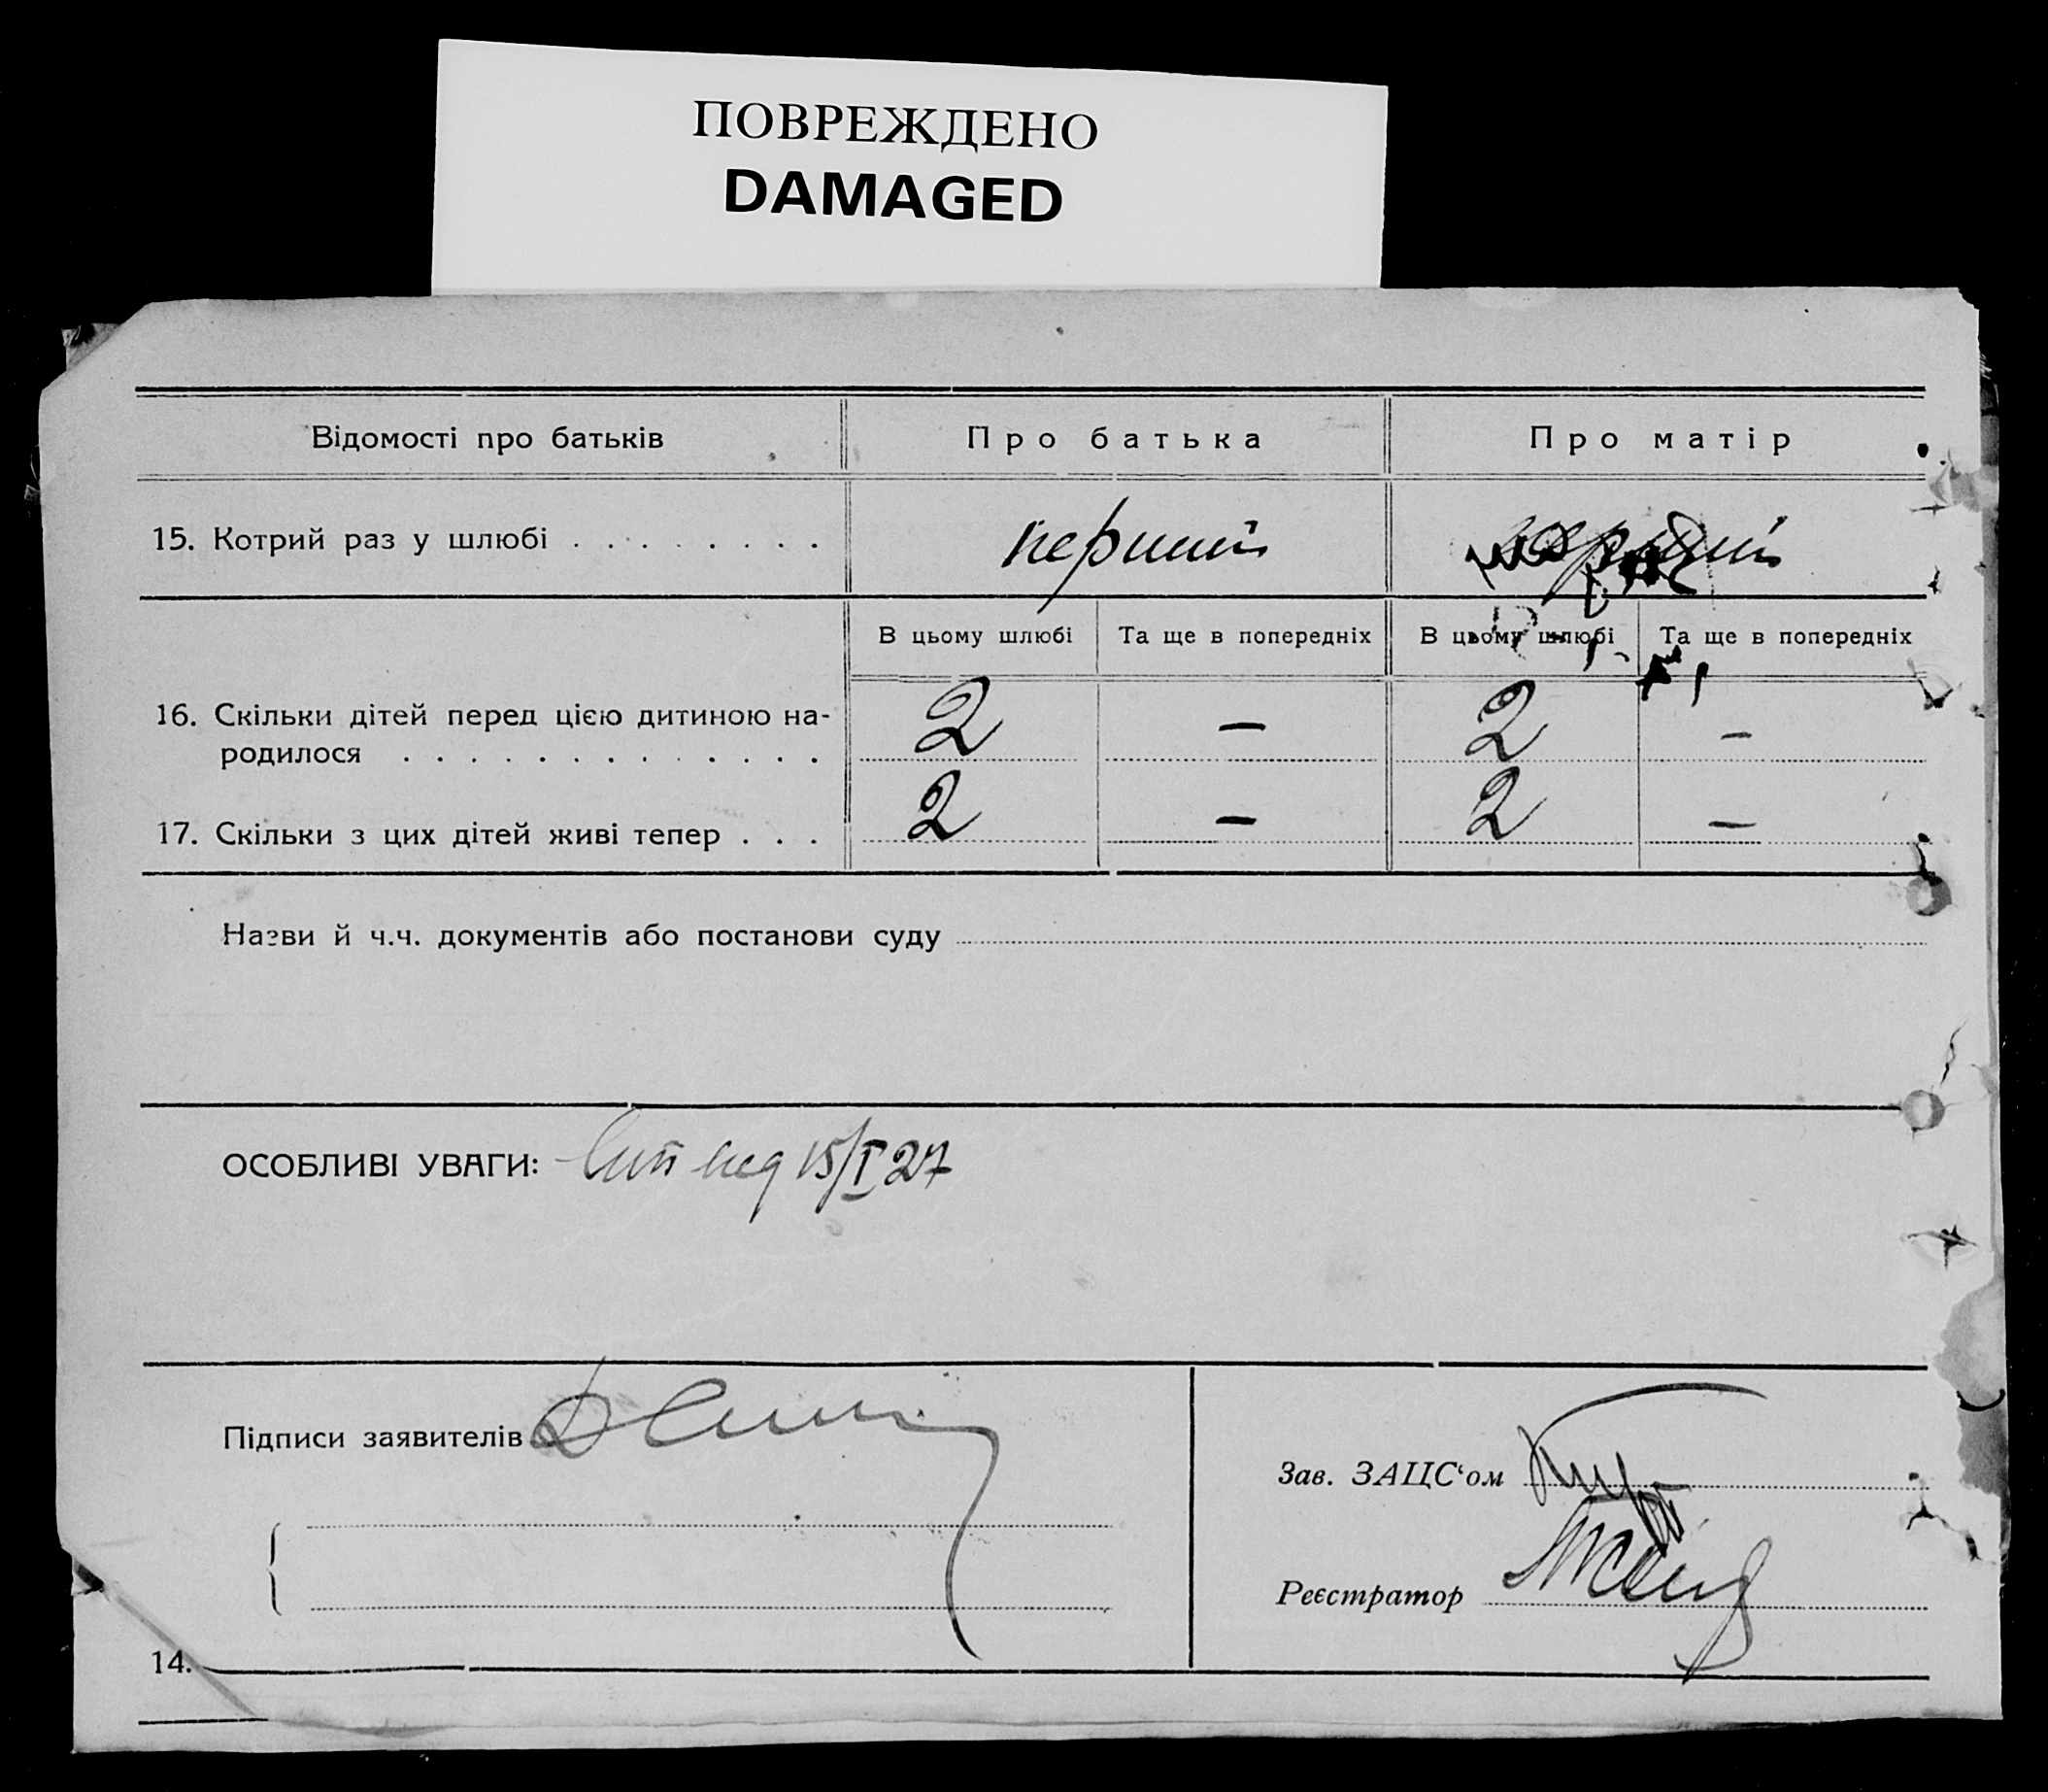 ПОВРЕЖДЕНО
DAMAGED
Відомості про батьків
Про батька
Про матір
15. Котрий раз у шлюбі . . . . . . . .
перший
перший
В цьому шлюбі
Та ще в попередніх
В цьому шлюбі
Та ще в попередніх
16. Скільки дітей перед цією дитиною на-
родилося . . . . . . . . . . . . .
2 — 2 —
17. Скільки з цих дітей живі тепер . . .
2 — 2 —
Назви й ч.ч. документів або постанови суду
ОСОБЛИВІ УВАГИ: 15/I 27
Підписи заявителів
Зав. ЗАЦС‘ом
Реєстратор
14.